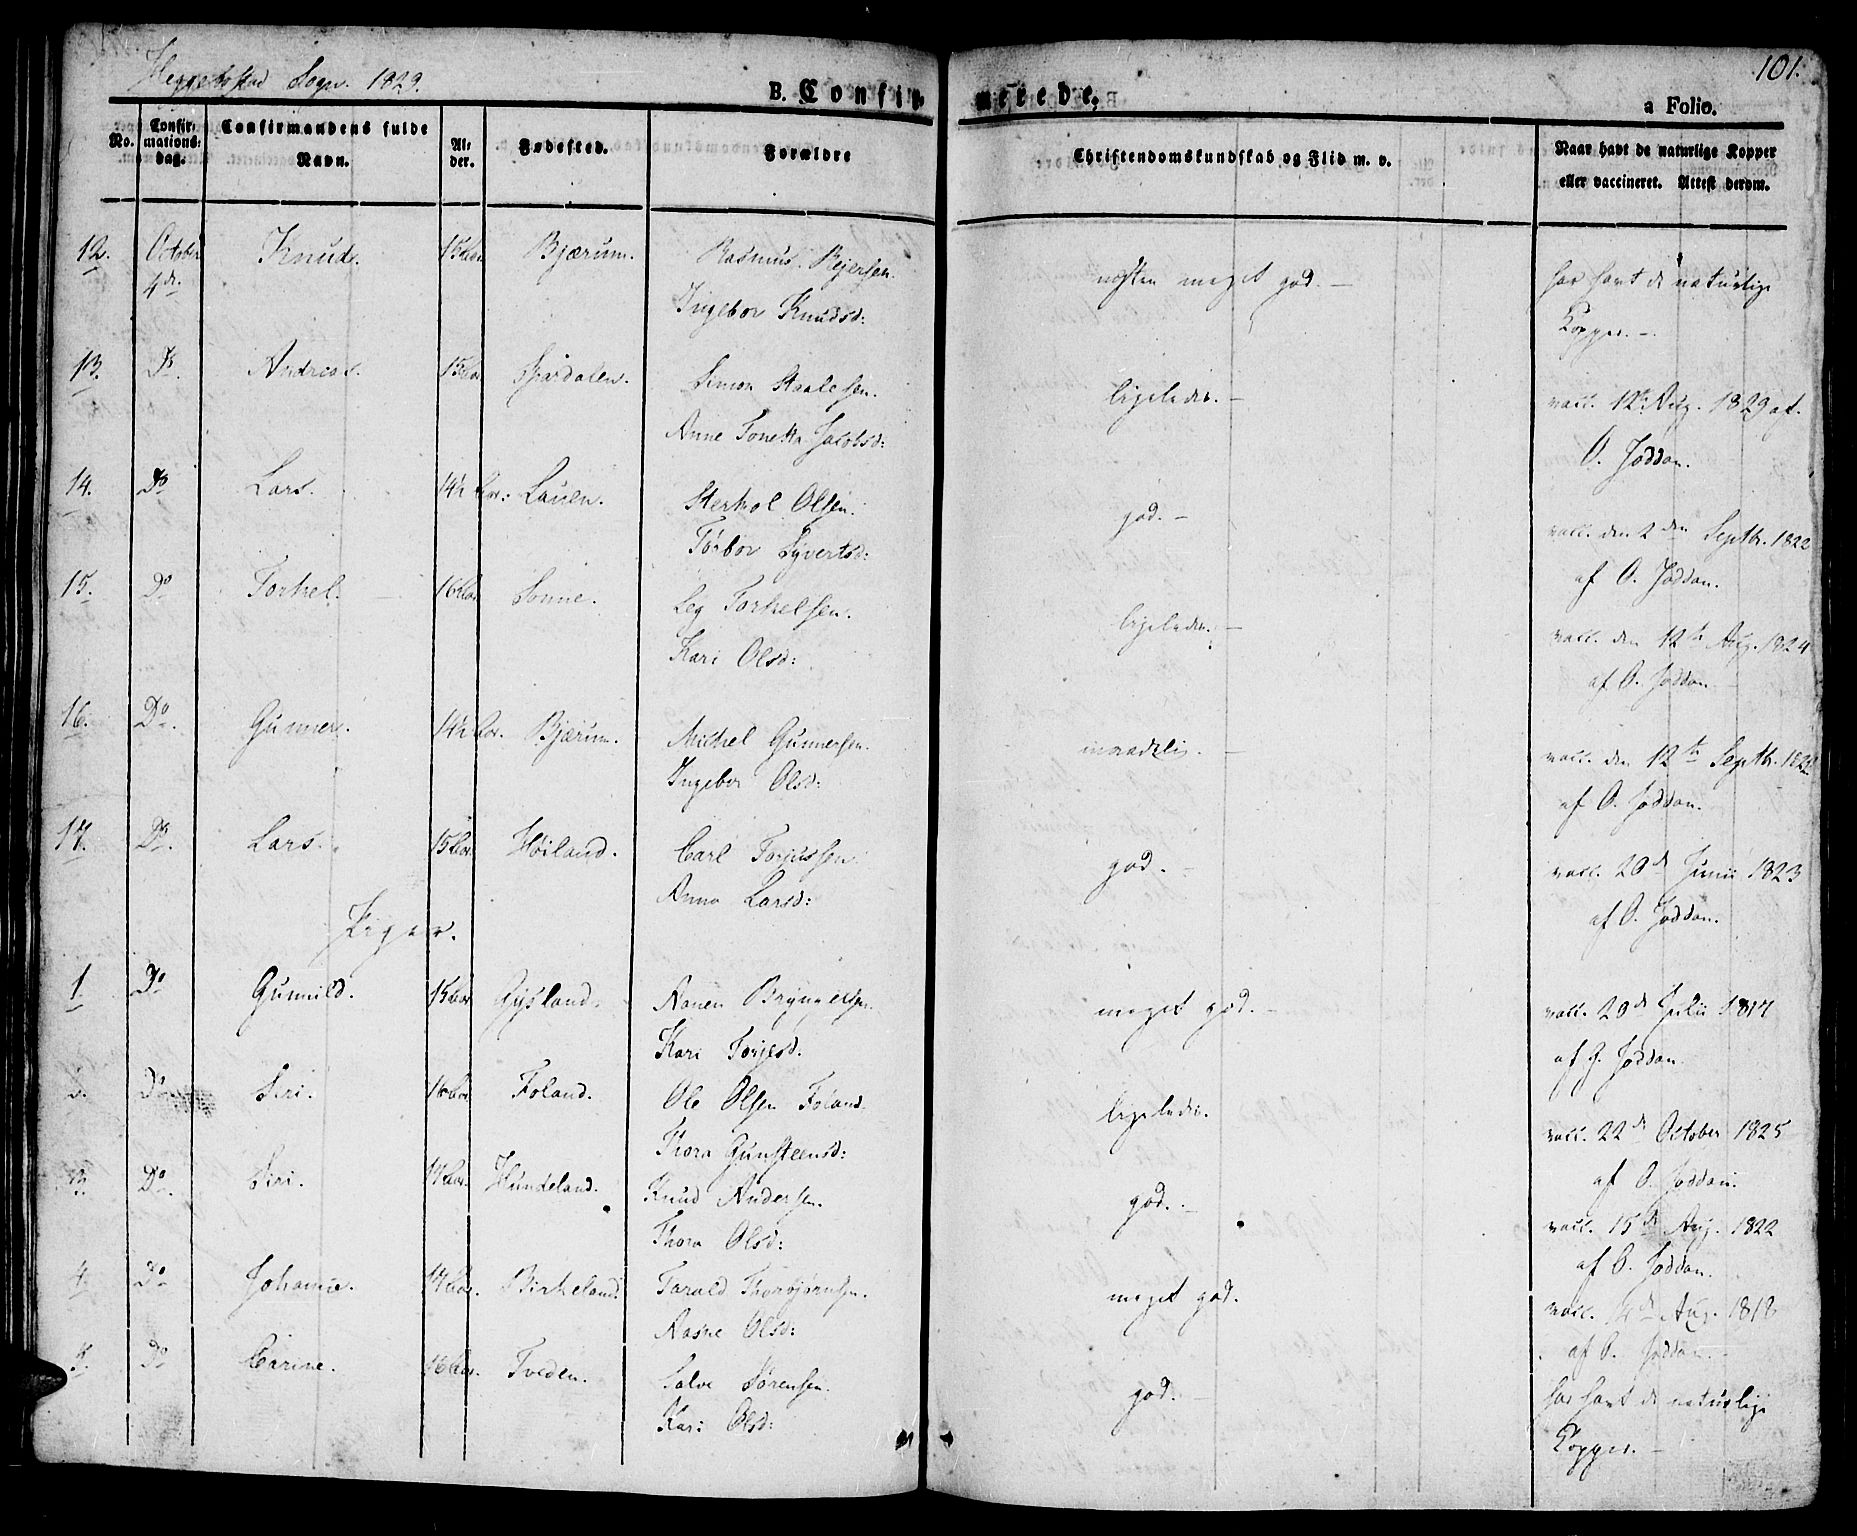 Heggebostad Sogn. 1829.
101.
B. Confirmerede,
a Folio.
No.
Confirmationsdag.
Confirmandens fulde Navn.
Alder.
Fødested.
Forældre
Christendomskundskab og Flid m. v.
Naar havt de naturlige Kopper eller vaccineret. Attest derom.
12. October 4de. Knud. 15 Aar. Bjærum. Rasmus Rejersen. næsten meget god. — har havt de naturlige
Ingebor Knudsd: Kopper. —
13. Do. Andreas. 15 Aar Simon Staalesen. ligeledes. — vacc. 12te Aug. 1829 af.
Anne Tonetta Jacobsd: O. Joddan.
14. Do Lars. 14½ Aar. Lauen. Sterkol Olsen. god. — vacc. den 2den Septbr. 1822
Tørbor Syvertsd: af O. Joddan.
15. Do Torkel. 16 Aar. Sonne. Torkelsen. ligeledes. — vacc. den 12te Aug. 1824
Kari Olsd: af O. Joddan.
16. Do. Gunner. 14½ Aar. Bjærum. Michel Gunnersen. — vacc. den 12te Septbr.
Ingebor Olsd: af O. Joddan.
17. Do. Lars. 15 Aar. Høiland. Carl Torjussen god. — vacc. 20de Junii 1823
Anna Larsd: af O. Joddan.
Piger.
1 Do Gunnild. 15 Aar Gysland. Aanen Bryngelsen meget god. — vacc. 20de Julii 1817
Kari Torjesd. af O. Joddan.
2. Do. Siri. 16 Aar. Foland. Ole Olsen Foland. ligeledes. vacc. 22de October 1825
Thora Gunsteensd: af O. Joddan.
3. Do. Siri. 17 Aar. Hundeland. Knud Andersen. god. — vacc. 15de Aug. 1822
Thora Olsd: af O. Joddan.
4. Do Johanne. 17 Aar. Birkeland. Tarald Thorbjørnsen. meget god. vacc. Aug. 1818
Aasne Olsd: af O. Joddan. —
5. Do Carine. 16 Aar. Tveden. Salve Sørensen. god. — har havt de naturlige
Kari Olsd: Kopper. —